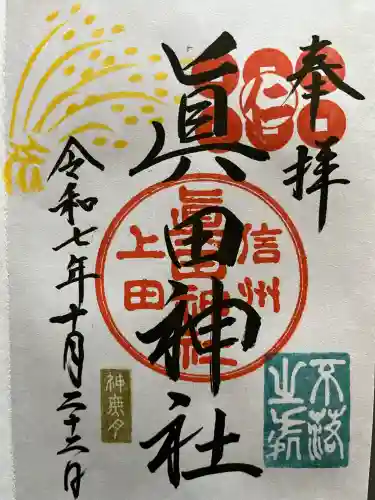 奉拝
眞田神社
信州
眞田神社
上田
令和七年十月二十六日
不落
之城